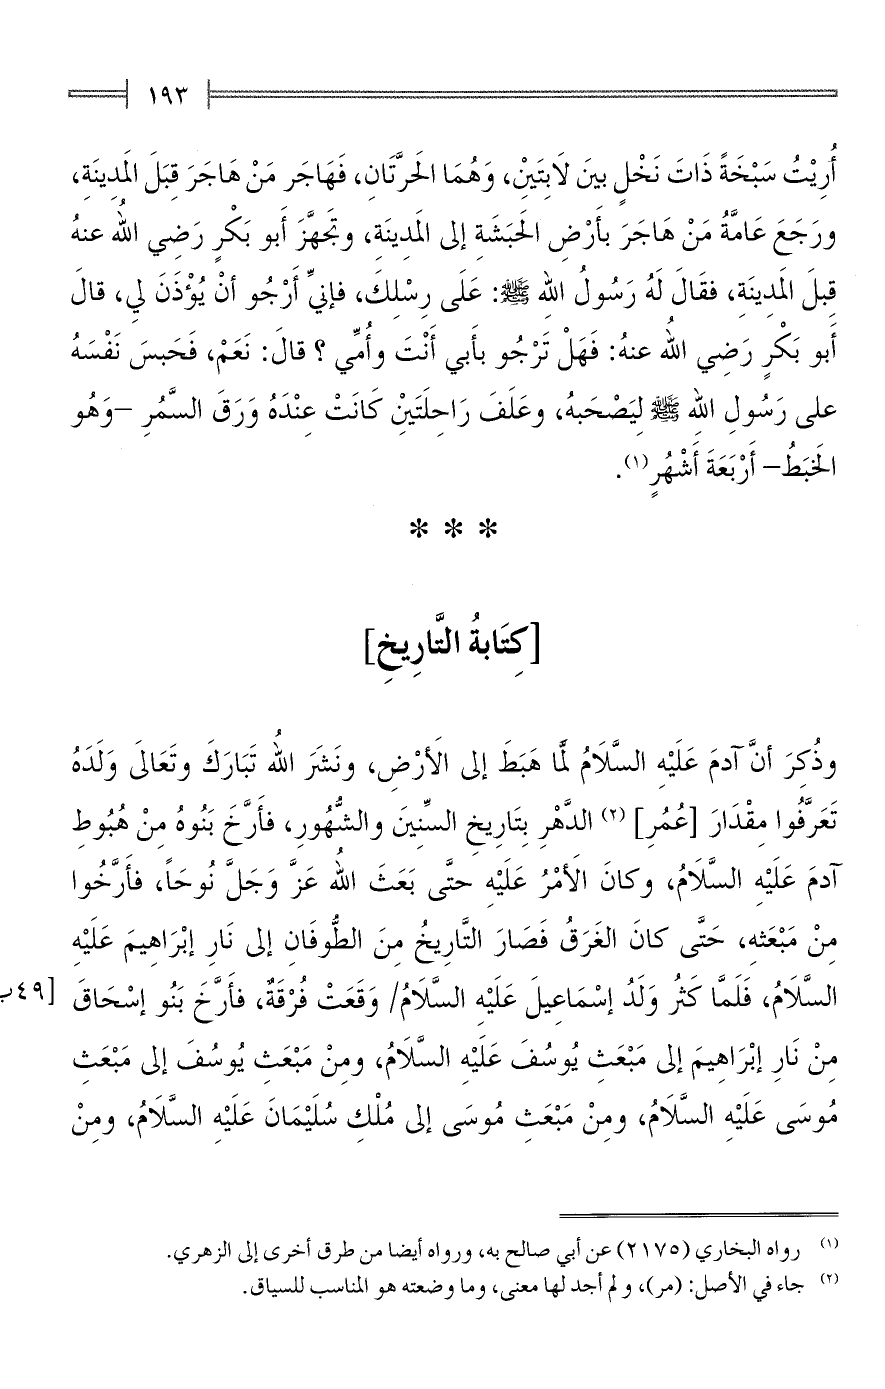 ١٩٣
أُرِيْتُ سَبْخَةً ذَاتَ نَخْلٍ بينَ لَابَتَيْنْ، وَهُمَا الحَرَّتَانِ، فَهَاجَر مَنْ هَاجَرَ قِبَلَ المَدِينَةِ،
ورَجَعَ عَامَّةُ مَنْ هَاجَرَ بأَرْضِ الحَبَشَةِ إلى المَدِينَةِ، وتَجهَّزَ أَبو بَكْرٍ رَضِي اللهُ عنهُ
قِبلَ المَدِينَةِ، فقَالَ لَهُ رَسُولُ اللهِ ﷺ: عَلَى رِسْلِكَ، فإنيِّ أَرْجُو أنْ يُؤْذَنَ لي، قالَ
أَبو بَكْرٍ رَضِي اللهُ عنهُ: فَهَلْ تَرْجُو بأَبي أَنْتَ وأُمِّي ؟ قالَ: نَعَمْ، فَحَبسَ نَفْسَهُ
على رَسُولِ اللهِ ﷺ لِيَصْحَبهُ، وعَلَفَ رَاحِلَتَيْنْ كَانَتْ عِنْدَهُ وَرَقَ السَّمُرِ –وَهُو
الخَبَطُ– أَرْبَعَةَ أَشْهُرٍ (١).
* * *
[كِتَابةُ التَّارِيخِ]
وذُكِرَ أنَّ آدمَ عَلَيْهِ السَّلَامُ لمَّا هَبَطَ إلى الأَرْضِ، ونَشَرَ اللهُ تَبَارَكَ وتَعَالَى وَلَدَهُ
تَعَرَّفُوا مِقْدَارَ [عُمُرِ] (٢) الدَّهْرِ بِتَاريخِ السِّنِينَ والشُّهُورِ، فأَرَّخَ بَنُوهُ مِنْ هُبُوطِ
آدمَ عَلَيْهِ السَّلَامُ، وكانَ الأَمْرُ عَلَيْهِ حتَّى بَعَثَ اللهُ عَزَّ وَجَلَّ نُوحَاً، فأَرَّخُوا
مِنْ مَبْعَثهِ، حَتَّى كانَ الغَرَقُ فَصَارَ التَّارِيخُ مِنَ الطُّوفَانِ إلى نَارِ إبْرَاهِيمَ عَلَيْهِ
السَّلَامُ، فَلَمَّا كَثُر وَلَدُ إسْمَاعِيلَ عَلَيْهِ السَّلَامُ/ وَقَعَتْ فُرْقَةٌ، فأَرَّخَ بَنُو إسْحَاقَ [٤٩ب
مِنْ نَارِ إبْرَاهِيمَ إلى مَبْعَثِ يُوسُفَ عَلَيْهِ السَّلَامُ، ومِنْ مَبْعَثِ يُوسُفَ إلى مَبْعَثِ
مُوسَى عَلَيْهِ السَّلَامُ، ومِنْ مَبْعَثِ مُوسَى إلى مُلْكِ سُلَيْمَانَ عَلَيْهِ السَّلَامُ، ومِنْ
(١) رواه البخاري (٢١٧٥) عن أبي صالح به، ورواه أيضا من طرق أخرى إلى الزهري.
(٢) جاء في الأصل: (مر)، و لم أجد لها معنى، وما وضعته هو المناسب للسياق.